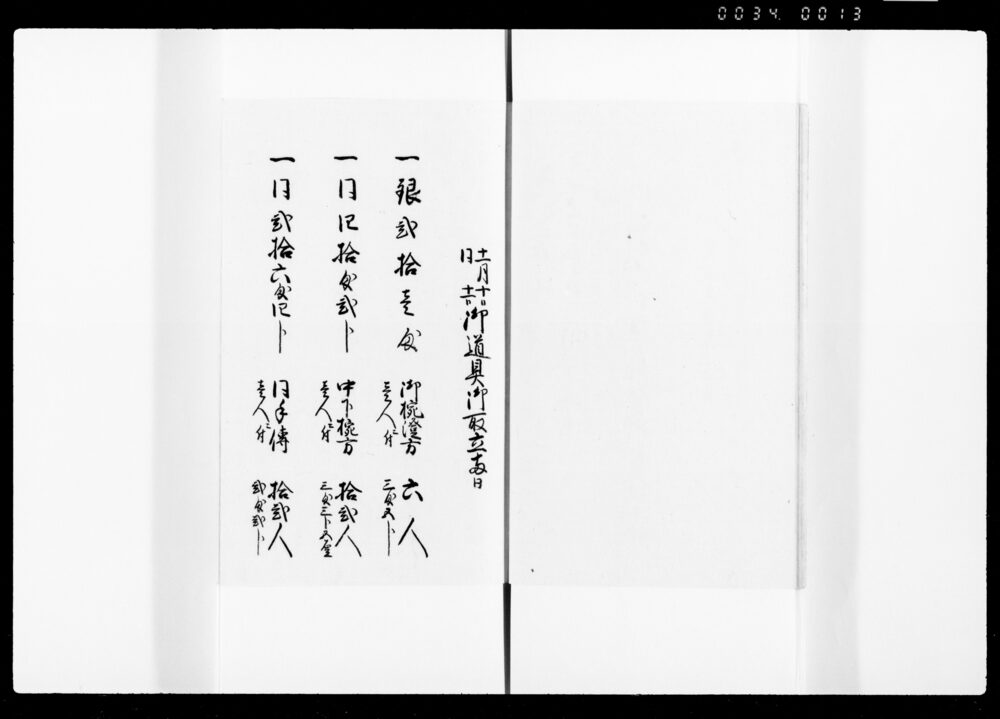 0034 0013
十一月十日
同 十一日
御道具御取立両日
一銀弐拾壱匁 御椀澄方 六人
壱人ニ付 三匁五分
一同四拾匁弐分 中下椀方 拾弐人
壱人ニ付 三匁三分五厘
一同弐拾六匁四分 同手傳 拾弐人
壱人ニ付 弐匁弐分